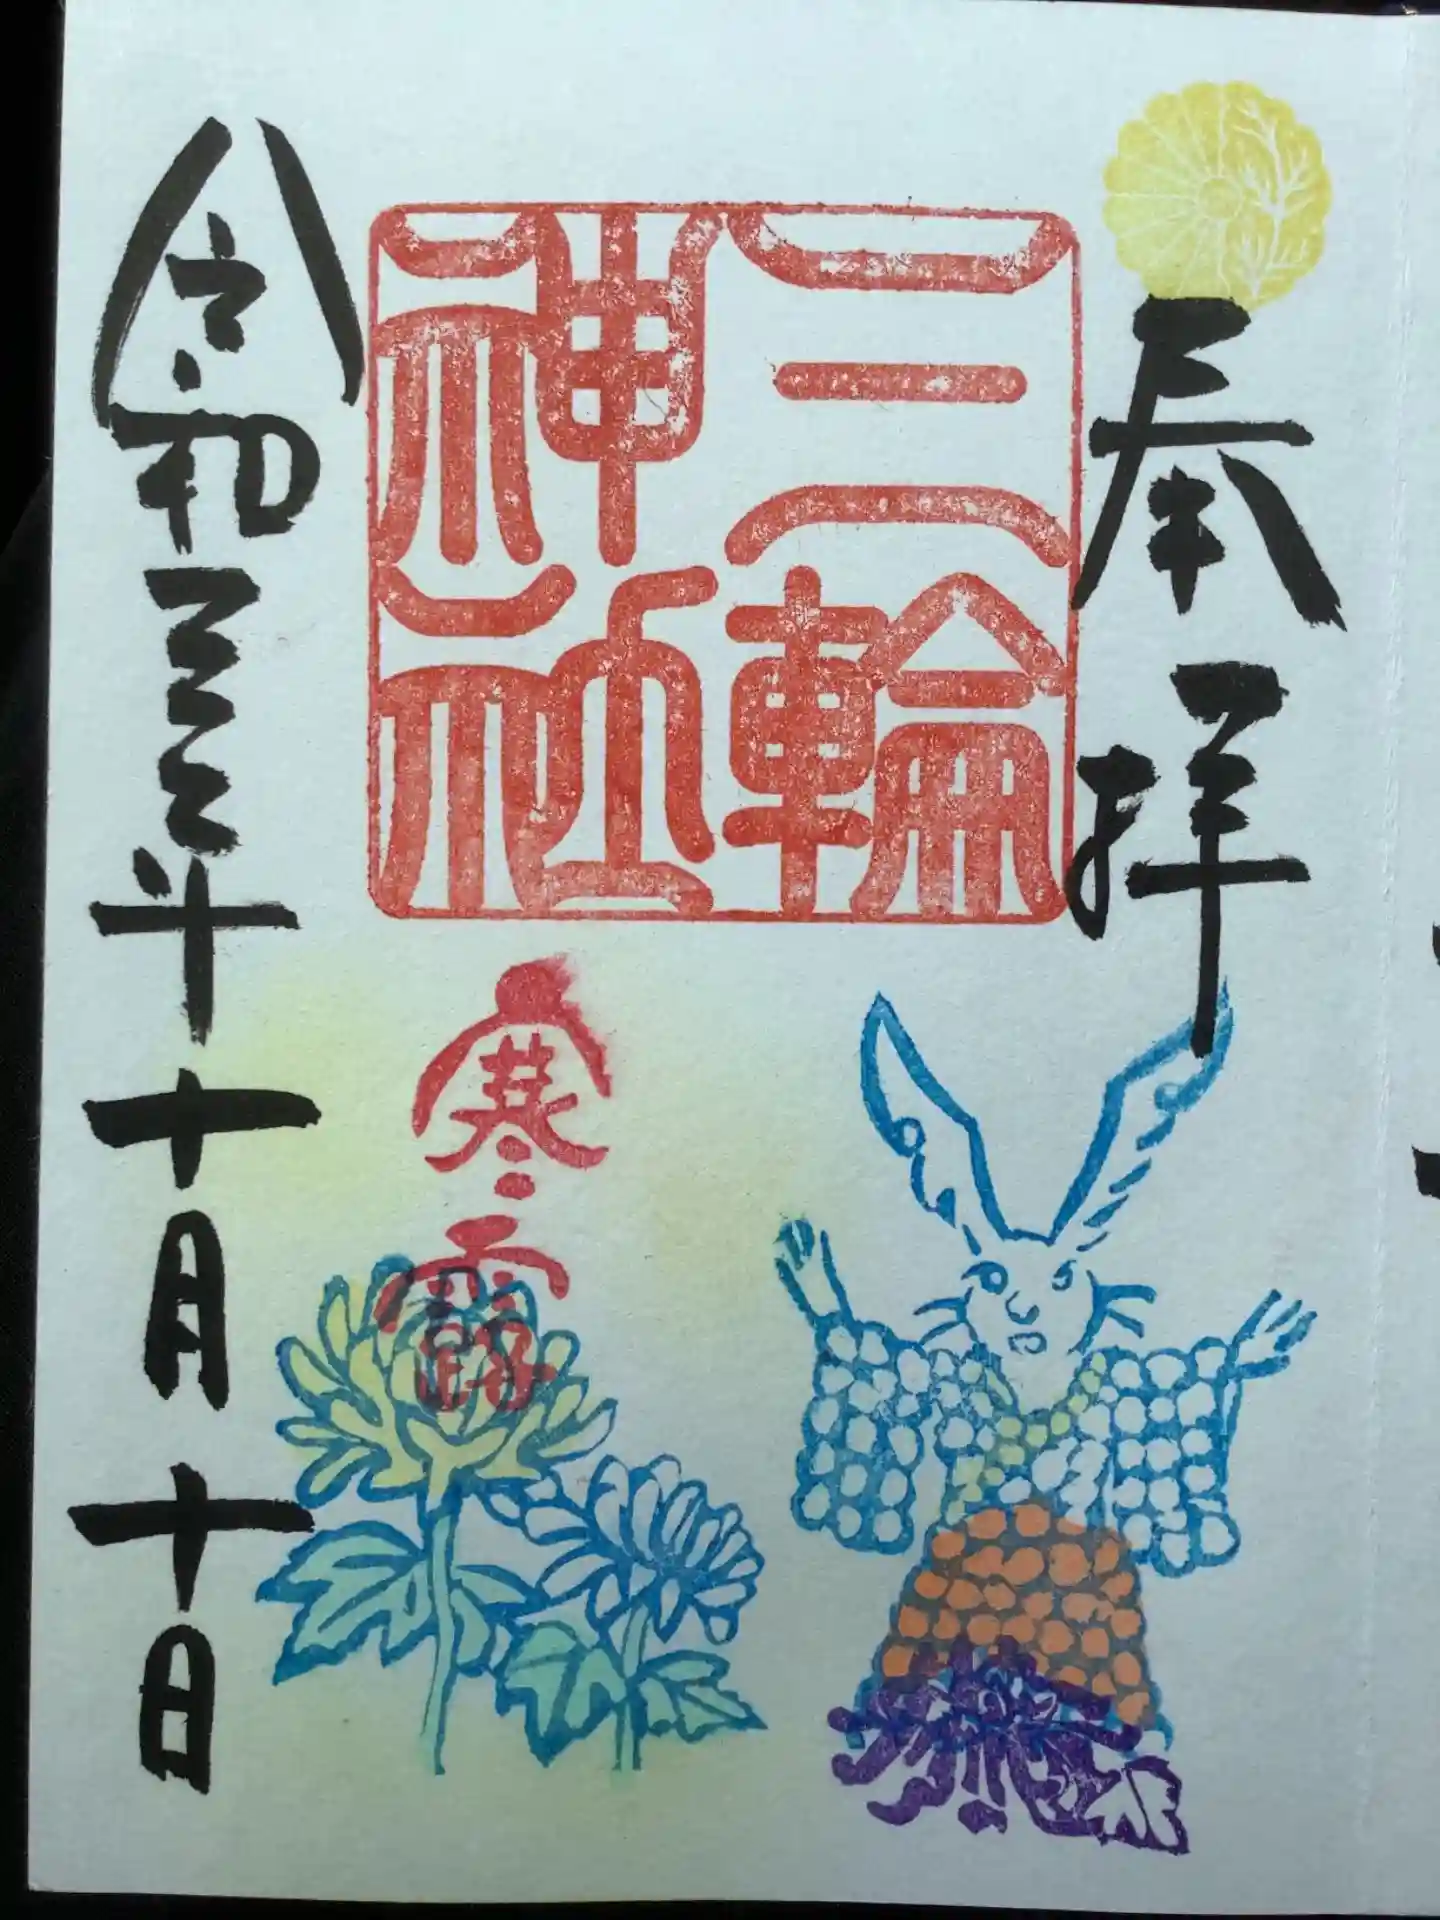 奉拝
三輪
神社
寒露
令和三年十月十日